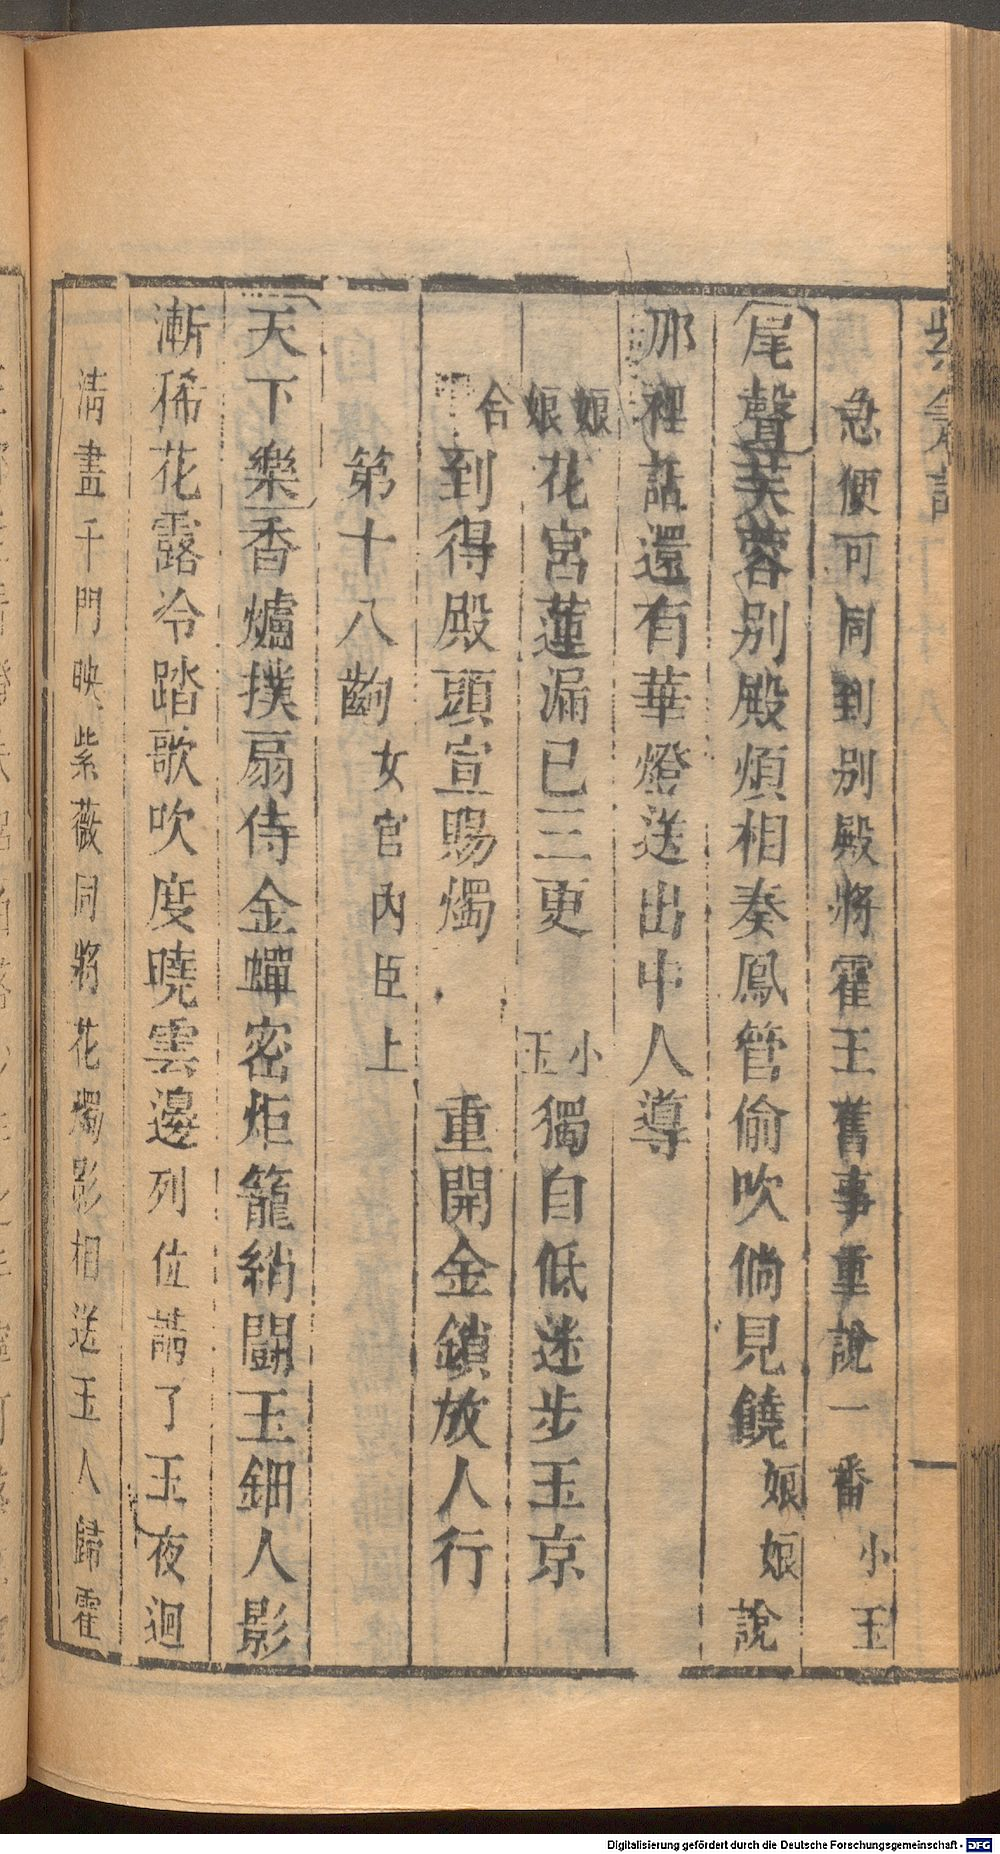 急便可同到別殿將霍王舊事重說一番小玉
尾聲芙蓉別殿煩相奏鳳管偷吹倘見饒娘娘說
那裡話還有華燈送出中人導
娘娘花宮蓮漏已三更 小玉獨自低迷步玉京
合到得殿頭宣賜燭 重開金鎖放人行
第十八齣 女官內臣上
天下樂香爐撲扇侍金蟬密炬籠綃鬪玉鈿人影
漸稀花露冷踏歌吹度曉雲邊列位請了玉夜迴
清晝千門映紫薇同將花燭影相送玉人歸霍
Digitalisierung gefördert durch die Deutsche Forschungsgemeinschaft - DFG